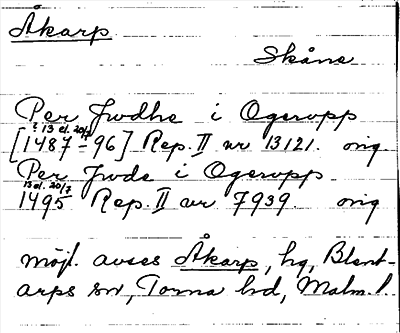 Åkarp
Skåne
Per Judhe i Ogeropp
? 13 el. 20/7
[1487-96] Rep. II nr 13121. orig.
Per Jude i Ogeropp
13 el. 20/7
1495 Rep. II nr 7939. orig
möjl. avses Åkarp, hg, Blent-
arps sn, Torna hd, Malm. l.